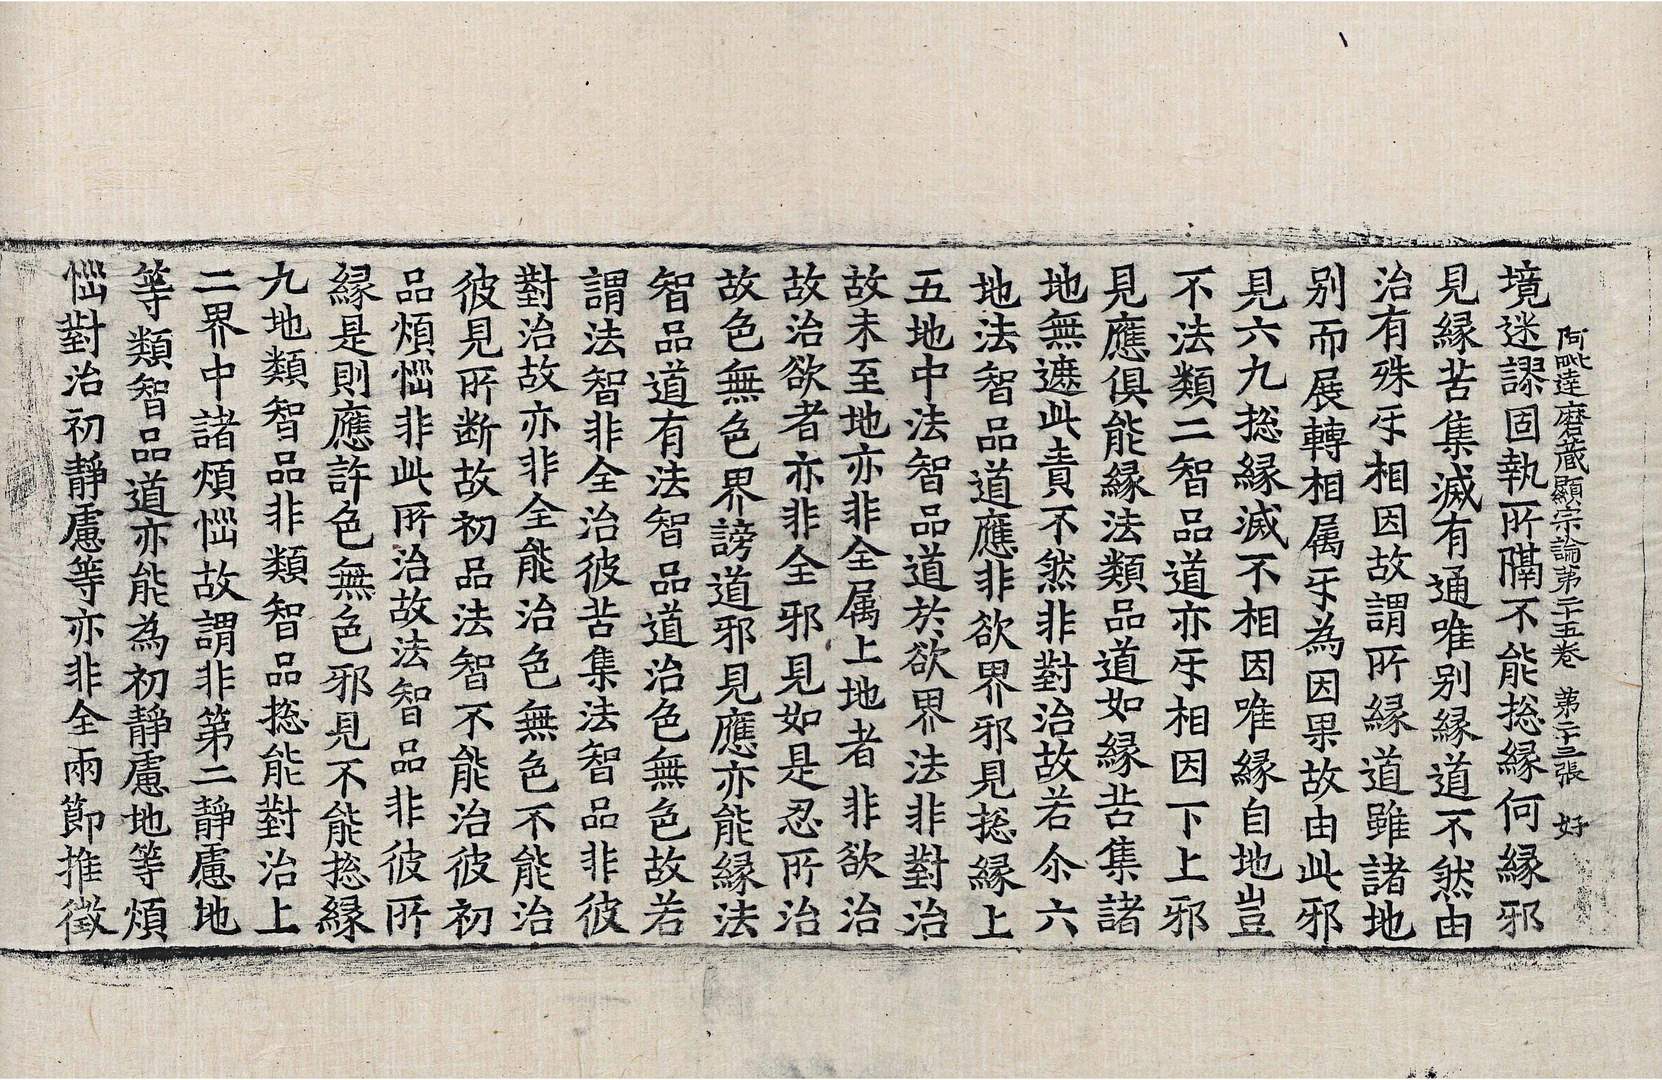 阿毗達磨藏顯宗論第二十五卷 第二十三張 好
境迷謬固執所隔不能揔緣何緣邪
見緣苦集滅有通唯别緣道不然由
治有殊牙相因故謂所緣道雖諸地
别而展轉相属牙為因果故由此邪
見六九揔緣滅不相因唯緣自地豈
不法類二智品道亦牙相因下上邪
見應俱能緣法類品道如緣苦集諸
地無遮此責不然非對治故若尒六
地法智品道應非欲界邪見揔緣上
五地中法智品道於欲界法非對治
故未至地亦非全属上地者非欲治
故治欲者亦非全邪見如是忍所治
故色無色界謗道邪見應亦能緣法
智品道有法智品道治色無色故若
謂法智非全治彼苦集法智品非彼
對治故亦非全能治色無色不能治
彼見所断故初品法智不能治彼初
品煩惱非此所治故法智品非彼所
緣是則應許色無色邪見不能揔緣
九地類智品非類智品揔能對治上
二界中諸煩惱故謂非第二靜慮地
等類智品道亦能為初靜慮地等煩
惱對治初靜慮等亦非全兩節推徵